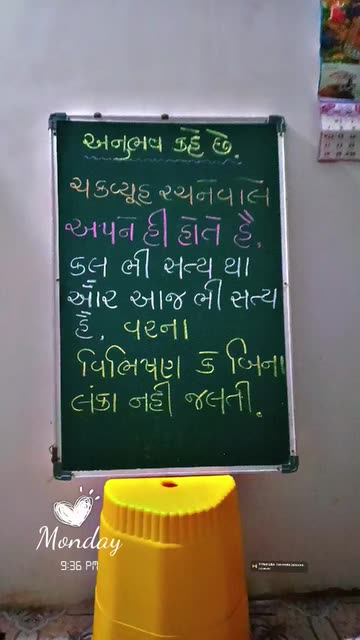 અનુભવ કહે છે.
ચક્રવ્યૂહ રચનેવાલે
અપને હી હોતે હૈ,
કલ ભી સત્ય થા
ઔર આજ ભી સત્ય
હૈ, વરના
વિભિષણ કે બિના
લંકા નહી જલતી.
Monday
9:36 PM